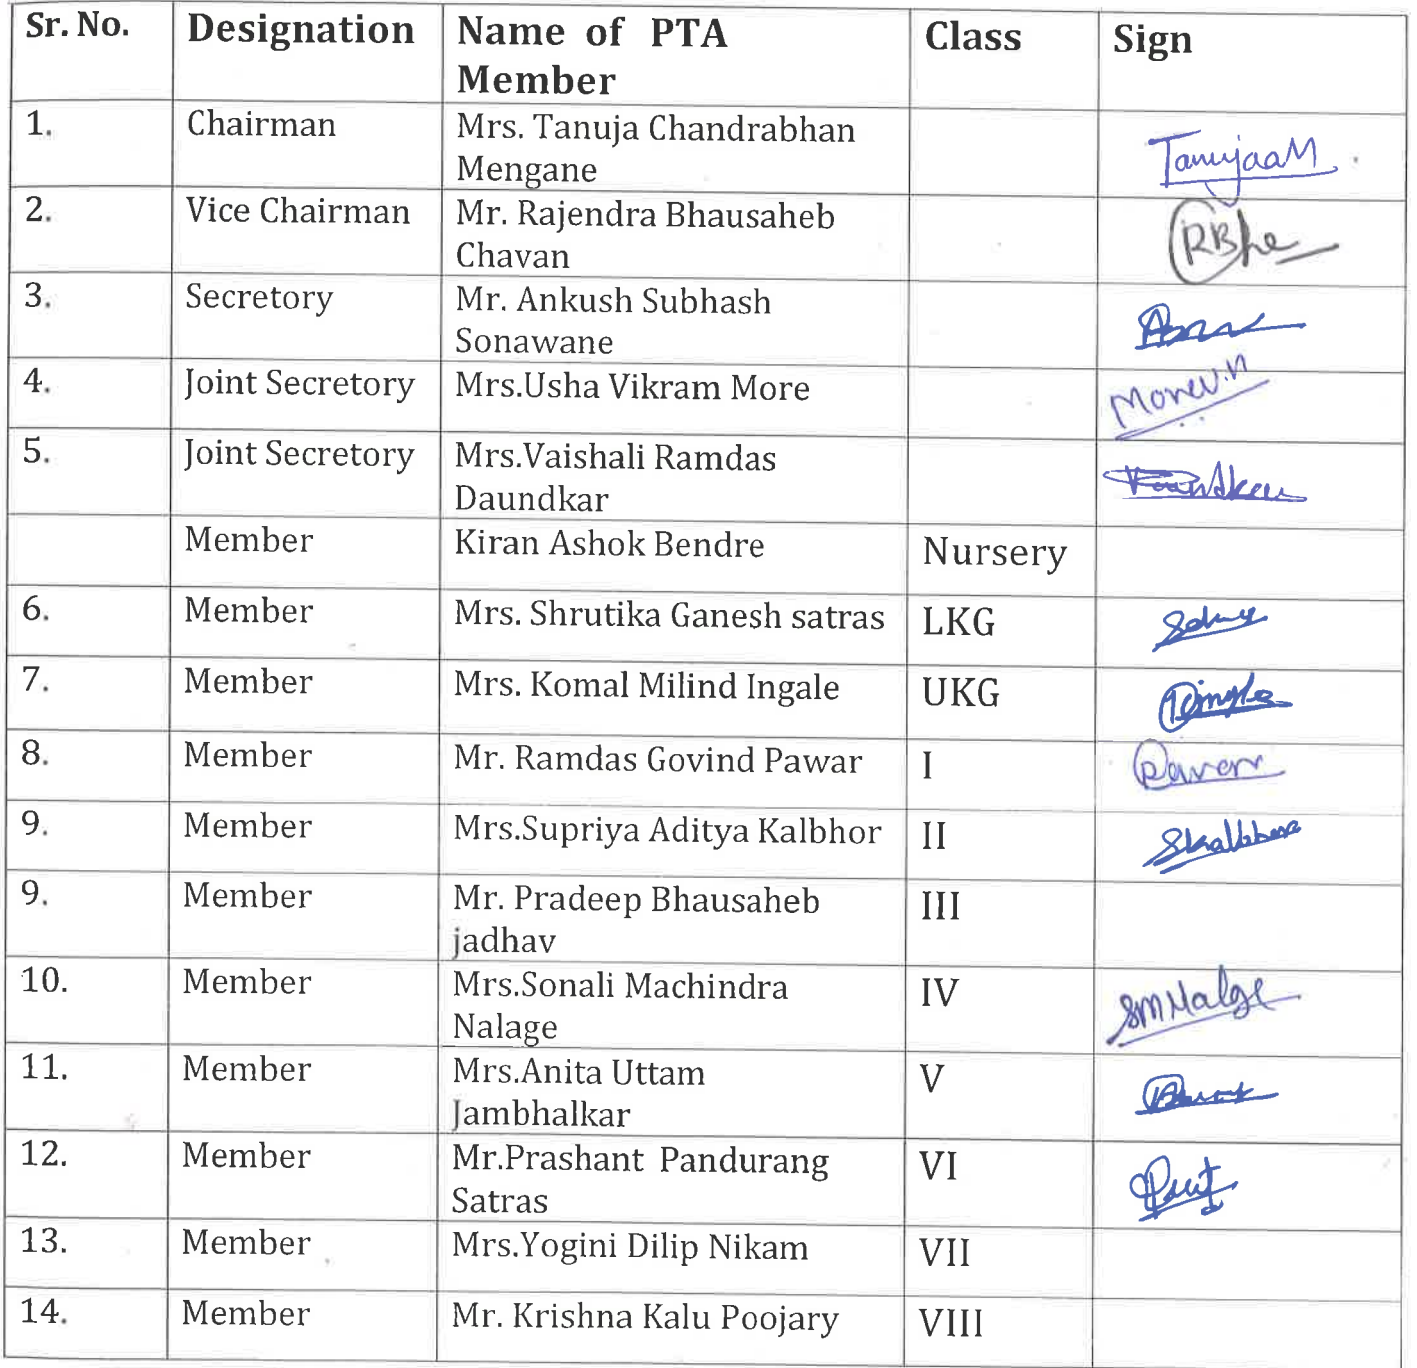 Sr. No. Designation Name of PTA Class Sign
Member
1. Chairman Mrs. Tanuja Chandrabhan TanujaaM
Mengane
2. Vice Chairman Mr. Rajendra Bhausaheb
Chavan
3. Secretory Mr. Ankush Subhash
Sonawane
4. Joint Secretory Mrs.Usha Vikram More
5. Joint Secretory Mrs.Vaishali Ramdas
Daundkar
Member Kiran Ashok Bendre Nursery
6. Member Mrs. Shrutika Ganesh satras LKG
7. Member Mrs. Komal Milind Ingale UKG
8. Member Mr. Ramdas Govind Pawar I
9. Member Mrs.Supriya Aditya Kalbhor II
9. Member Mr. Pradeep Bhausaheb III
jadhav
10. Member Mrs.Sonali Machindra IV
Nalage
11. Member Mrs.Anita Uttam V
Jambhalkar
12. Member Mr.Prashant Pandurang VI
Satras
13. Member Mrs.Yogini Dilip Nikam VII
14. Member Mr. Krishna Kalu Poojary VIII